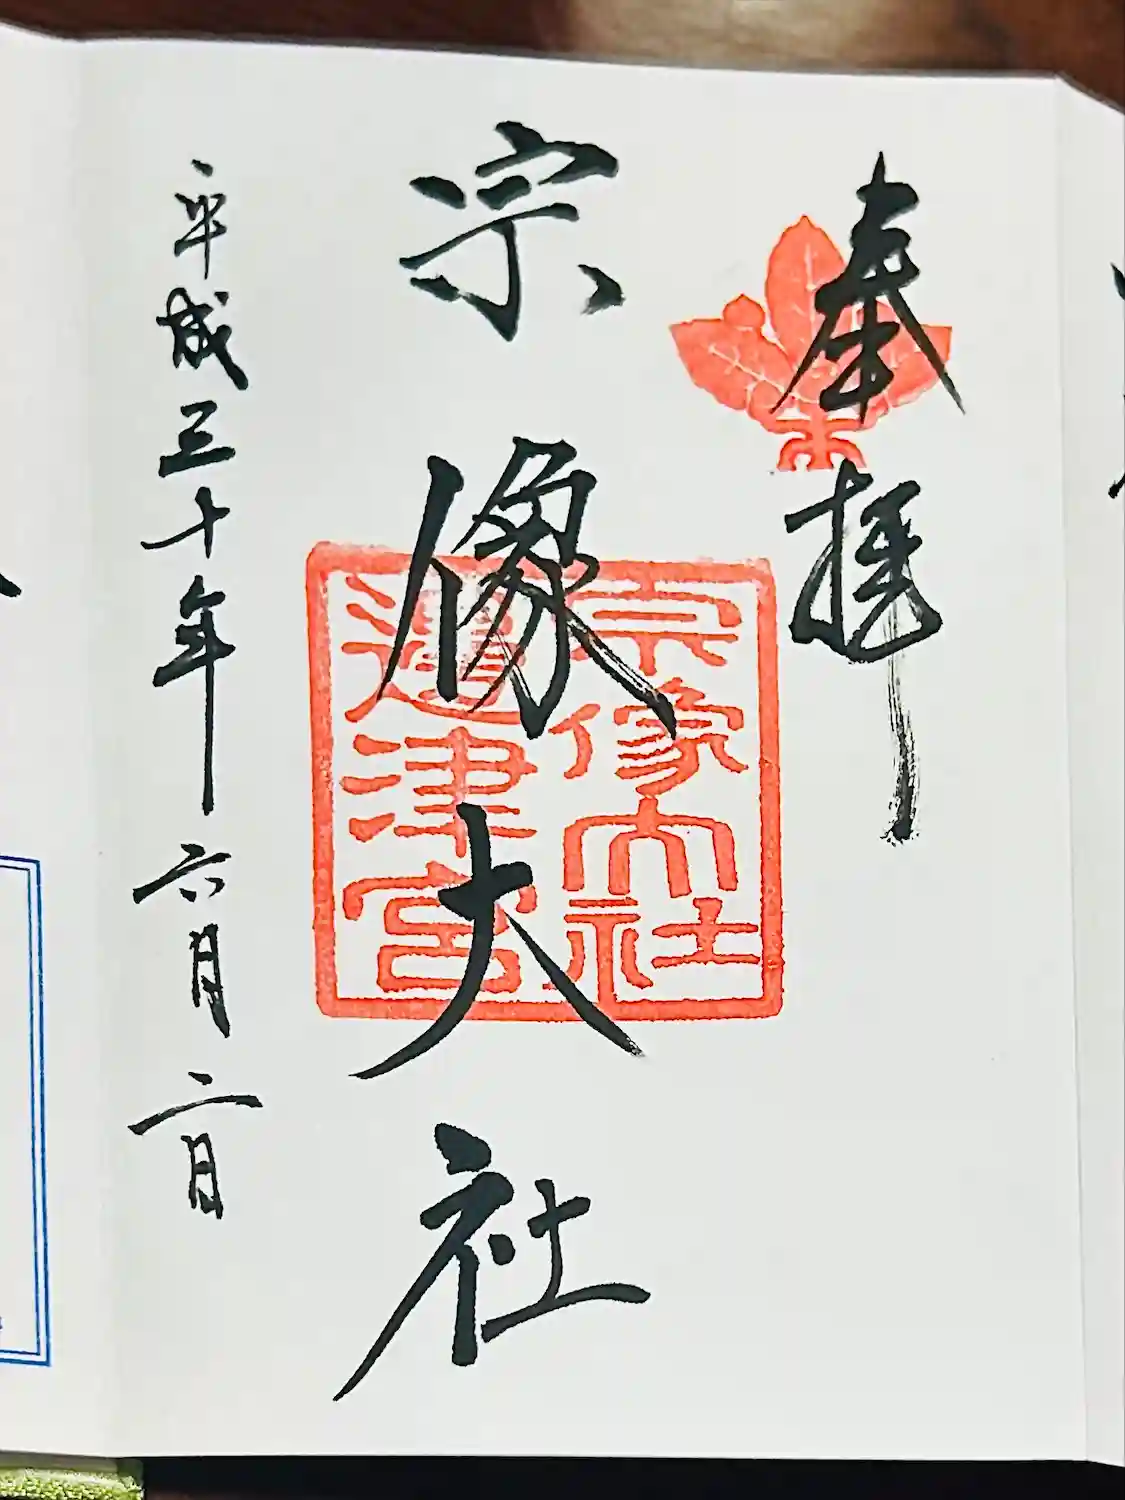 奉拝
宗像大社
宗像大社
邉津宮
平成三十年六月二日